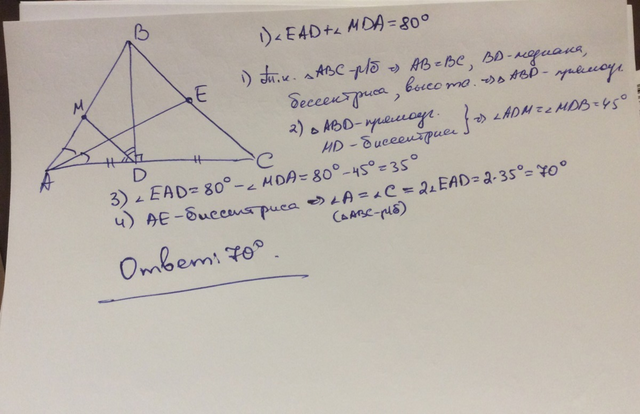 1) ∠EAD+∠MDA=80°
1) Т.к. △ABC-р/б ⇒ AB=BC, BD-медиана,
бессектриса, высота. ⇒ △ABD-прямоуг.
2) △ABD-прямоуг.
MD-биссектриса } ⇒ ∠ADM=∠MDB=45°
3) ∠EAD=80°-∠MDA=80°-45°=35°
4) AE-биссектриса ⇒ ∠A=∠C=2∠EAD=2·35°=70°
(△ABC-р/б)
Ответ: 70°.
B
M
E
A
D
C